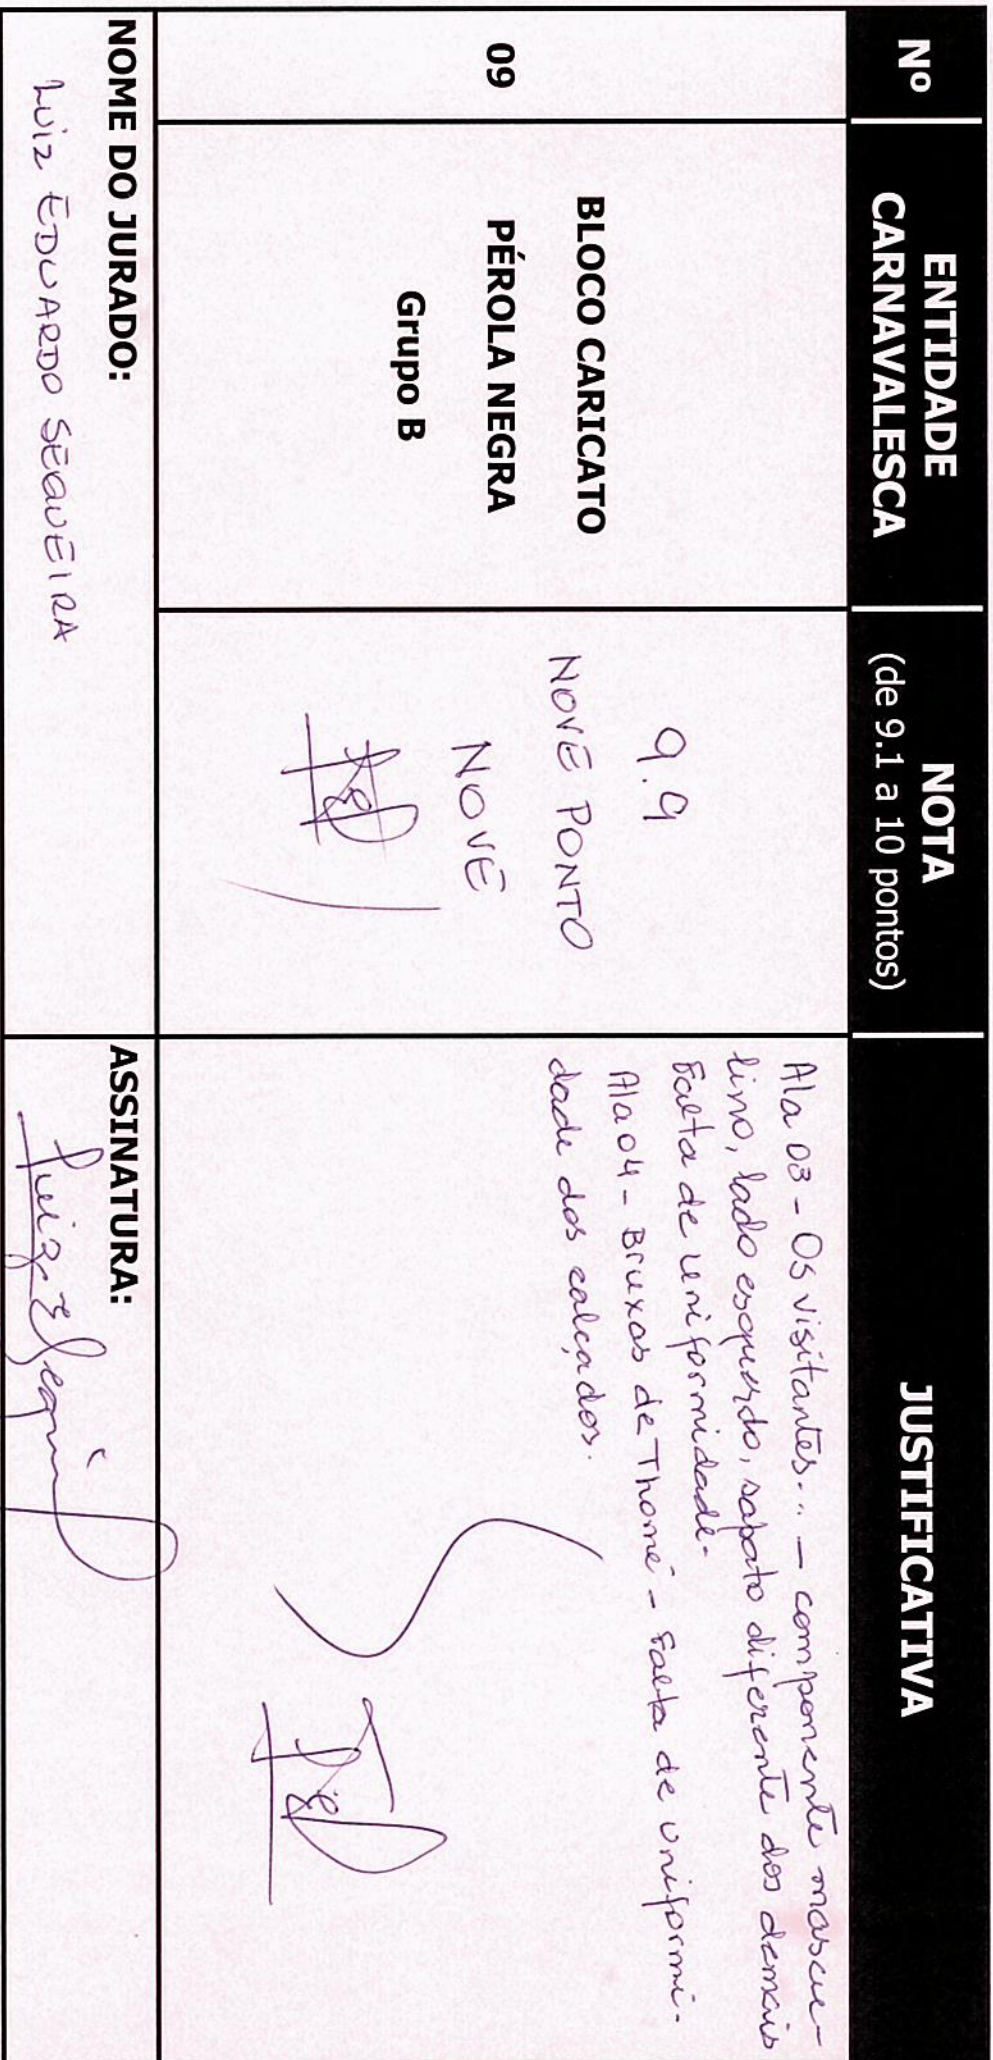 Nº
ENTIDADE
CARNAVALESCA
NOTA
(de 9.1 a 10 pontos)
JUSTIFICATIVA
09
BLOCO CARICATO
PÉROLA NEGRA
Grupo B
9.9
NOVE PONTO
NOVE
Ala 03 - Os visitantes... - componente mascu-
lino, lado esquerdo, sapato diferente dos demais
Falta de uniformidade.
Ala 04 - Bruxas de Thomé - Falta de uniformi-
dade dos calçados.
NOME DO JURADO:
LUIZ EDUARDO SEQUEIRA
ASSINATURA: